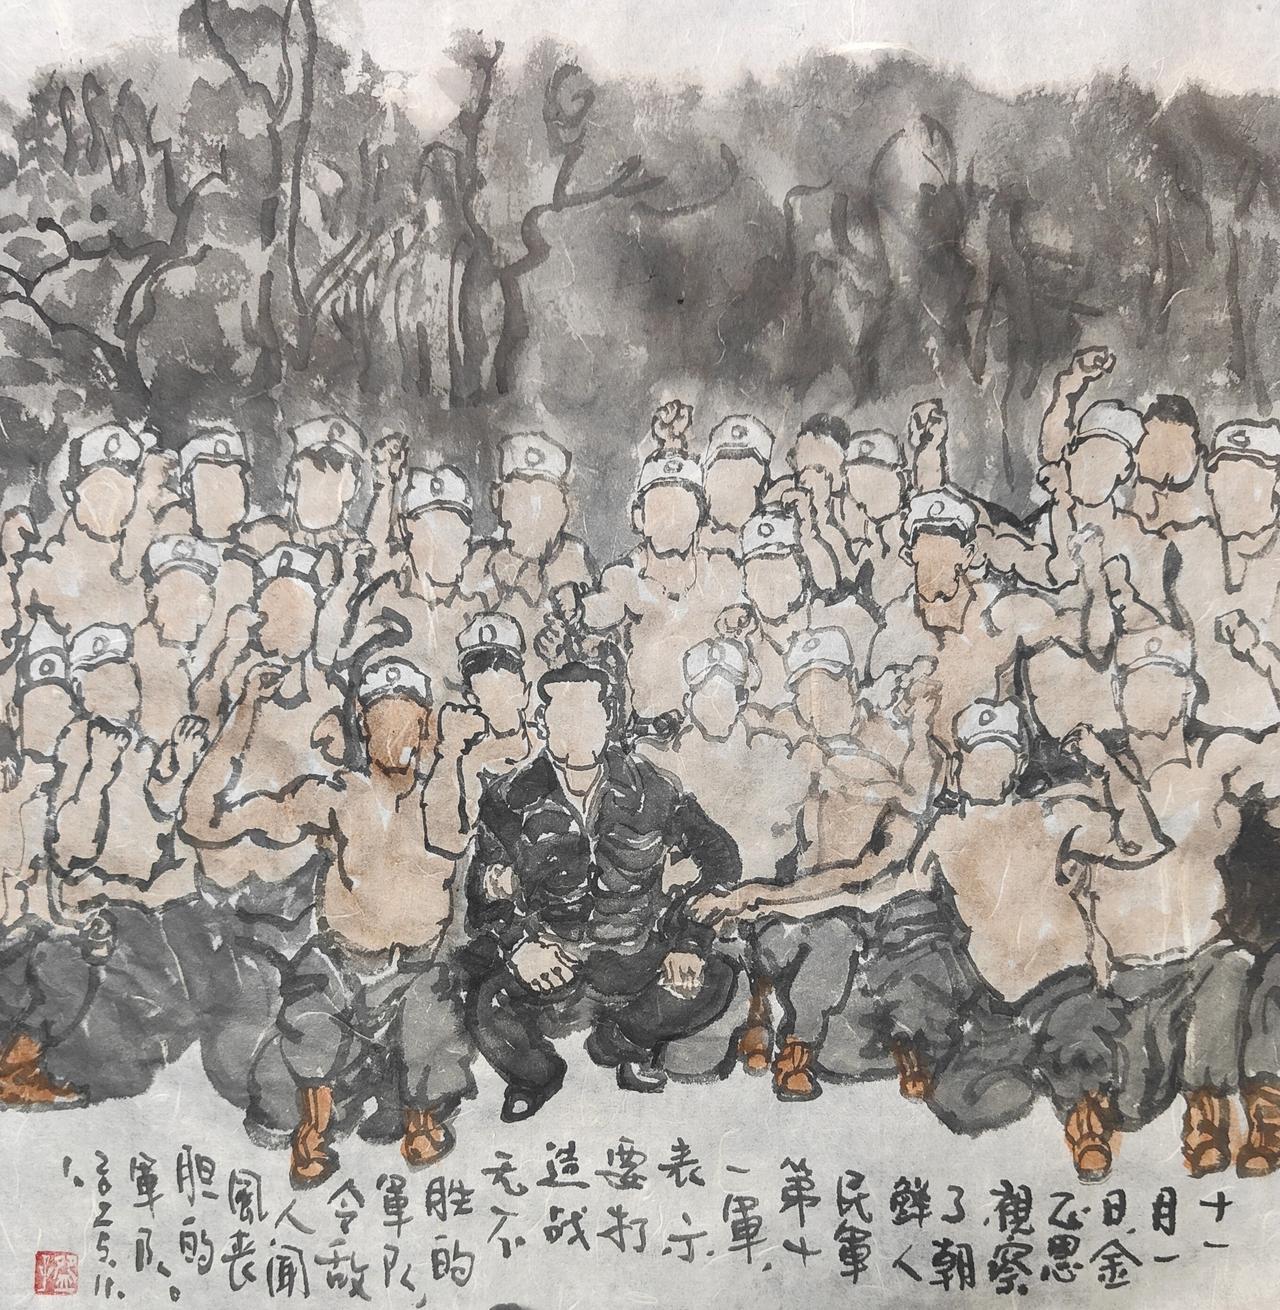 十一
月一
日,金
正恩
視察
了朝
鮮人
民軍
第十
一軍,
表示
要打
造战
无不
胜的
軍队,
令敌
人闻
風丧
胆的。
軍队、
2025.11.
1、